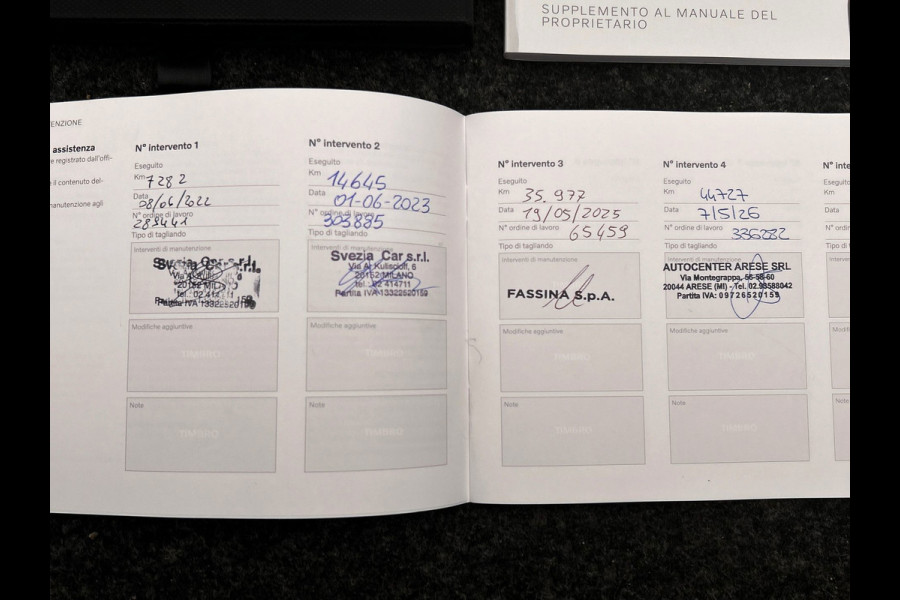 SUPPLEMENTO AL MANUALE DEL
PROPRIETARIO
ENZIONE
assistenza
e registrato dall'offi-
e il contenuto del-
manutenzione agli
N° intervento 1
Eseguito
Km 7282
Data 08/06/2022
N° ordine di lavoro
Tipo di tagliando
Interventi di manutenzione
Svezia Car s.r.l.
20152 MIL
Modifiche aggiuntive
TIMBRO
Note
TIMBRO
N° intervento 2
Eseguito
Km 14645
Data 01-06-2023
N° ordine di lavoro
303885
Tipo di tagliando
Interventi di manutenzione
Svezia Car s.r.l.
Via A. Kuliscioff, 6
20152 MILANO
Tel. 02 414711
Partita IVA 13322520159
Modifiche aggiuntive
TIMBRO
Note
TIMBRO
N° intervento 3
Eseguito
Km 35.977
Data 19/05/2025
N° ordine di lavoro 65459
Tipo di tagliando
Interventi di manutenzione
FASSINA S.p.A.
Modifiche aggiuntive
TIMBRO
Note
TIMBRO
N° intervento 4
Eseguito
Km 44727
Data 7/5/26
N° ordine di lavoro 336282
Tipo di tagliando
Interventi di manutenzione
AUTOCENTER ARESE SRL
Via Montegrappa, 56-58-60
20044 ARESE (MI) - Tel. 02.93588042
Partita IVA: 09726520159
Modifiche aggiuntive
TIMBRO
Note
TIMBRO
N° inte
Eseguito
Km
Data
N° ordin
Tipo di t
Interven
Modif
Note